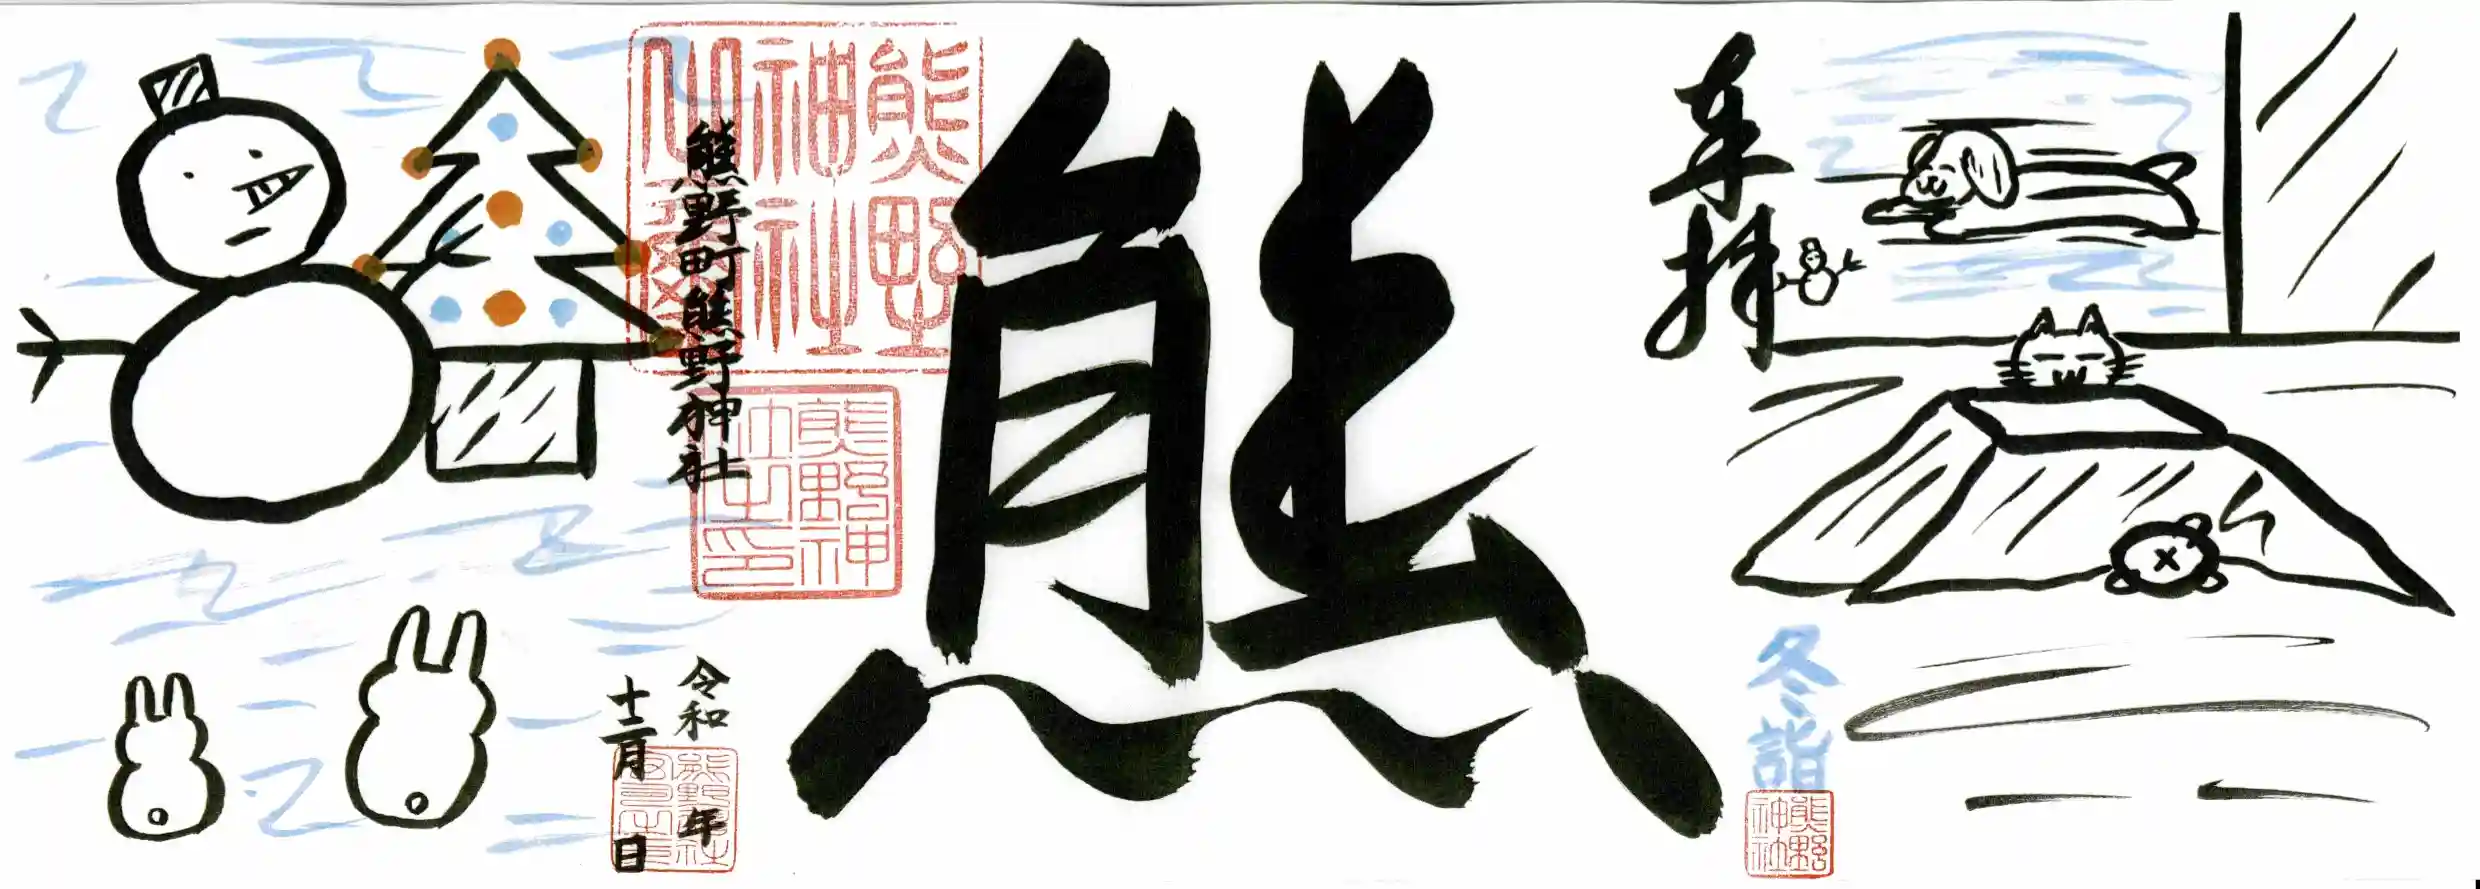 奉拝
冬詣
熊野
神社
熊
熊野
神社
熊野神
社之印
熊野町熊野神社
令和 年
十二月 日